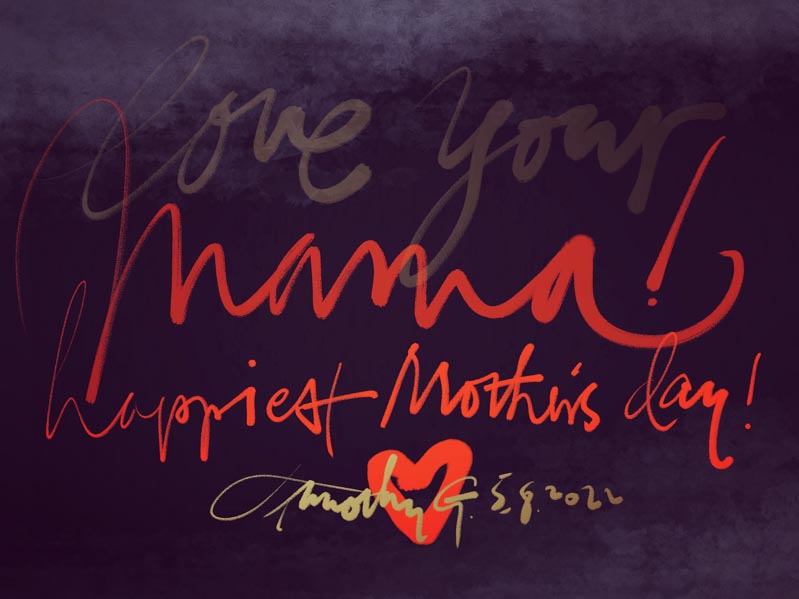 love your
mama!
happiest Mother's day!
Timothy G. 5.8.2022